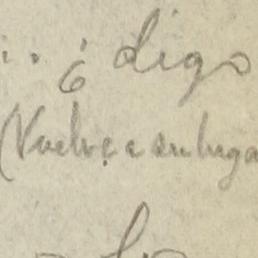 .. ¿ digo
(Vuelve a su luga